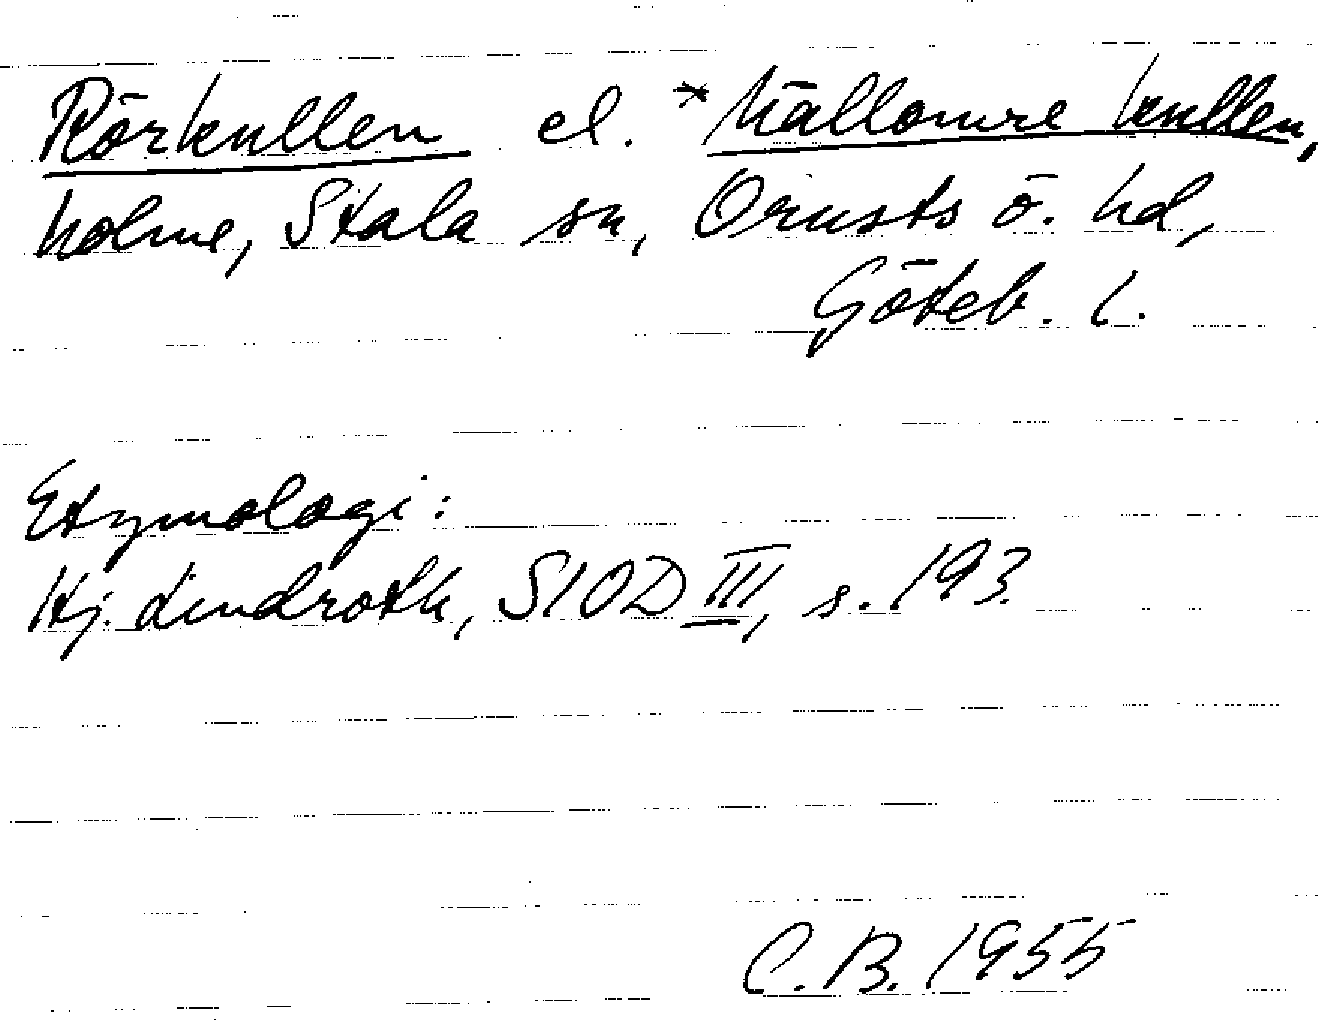 Rörkullen el. *Hällomre kullen,
holme, Stala sn, Orusts ö. hd,
Göteb. l.
Etymologi:
Hj. Lindroth, SIOD III, s. 193.
C.B. 1955